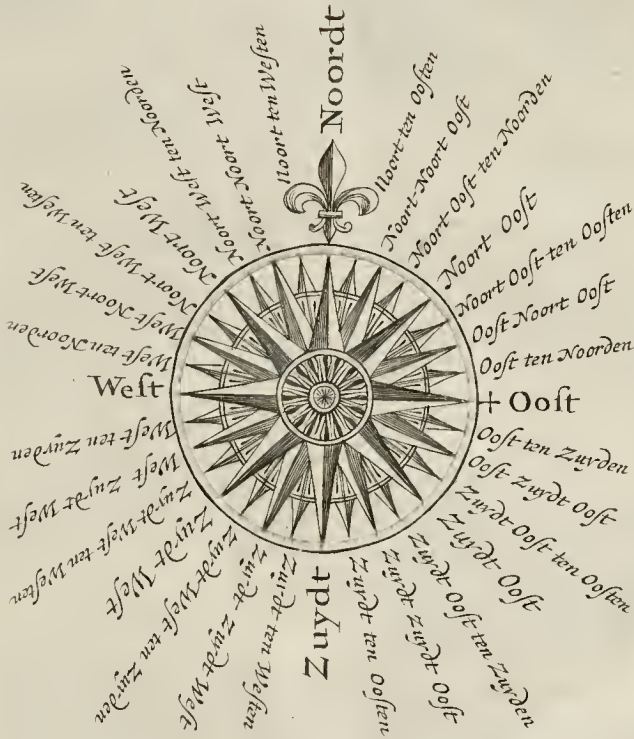 Noordt
Noort ten Ooſten
Noort-Noort Ooſt
Noort Ooſt-ten Noorden
Noort Ooſt
Noort Ooſt-ten Ooſten
Ooſt Noort Ooſt
Ooſt ten Noorden
Ooſt
Ooſt ten Zuyden
Ooſt Zuydt Ooſt
Zuydt Ooſt ten Ooſten
Zuydt Ooſt
Zuydt Ooſt ten Zuyden
Zuydt Zuydt Ooſt
Zuydt ten Ooſten
Zuydt
Zuydt ten Weſten
Zuydt Zuydt Weſt
Zuydt Weſt ten Zuyden
Zuydt Weſt
Zuydt Weſt ten Weſten
Weſt Zuydt Weſt
Weſt ten Zuyden
Weſt
Weſt ten Noorden
Weſt Noort Weſt
Noort Weſt ten Weſten
Noort Weſt
Noort Weſt ten Noorden
Noort Noort Weſt
Noort ten Weſten